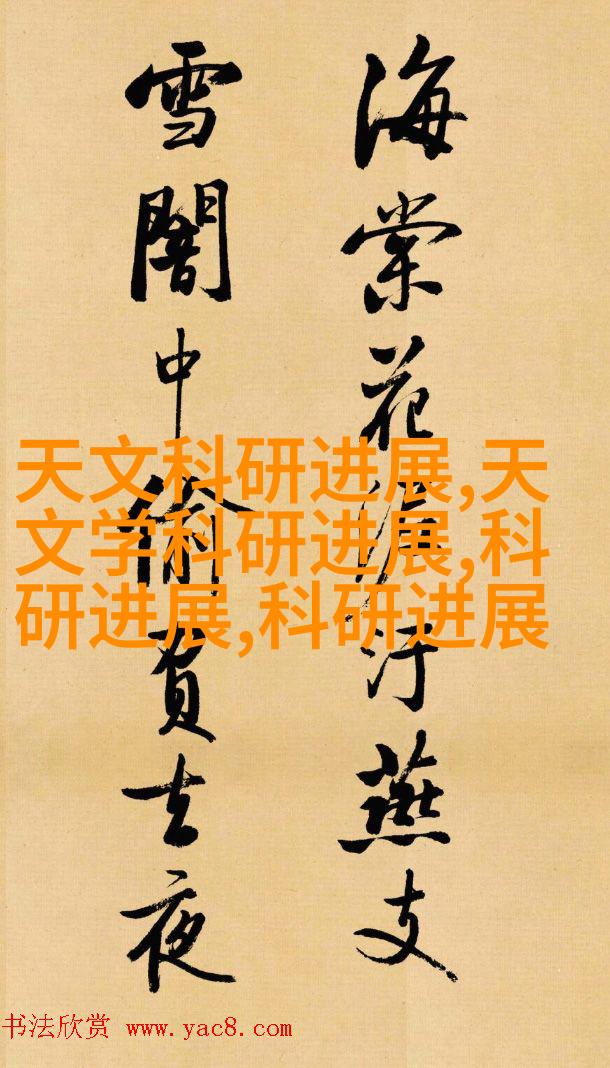 海棠花泥汙燕支
雪闇中偷負去夜
天文科研进展,天
文学科研进展,科
研进展,科研进展
书法欣赏 www.yac8.com